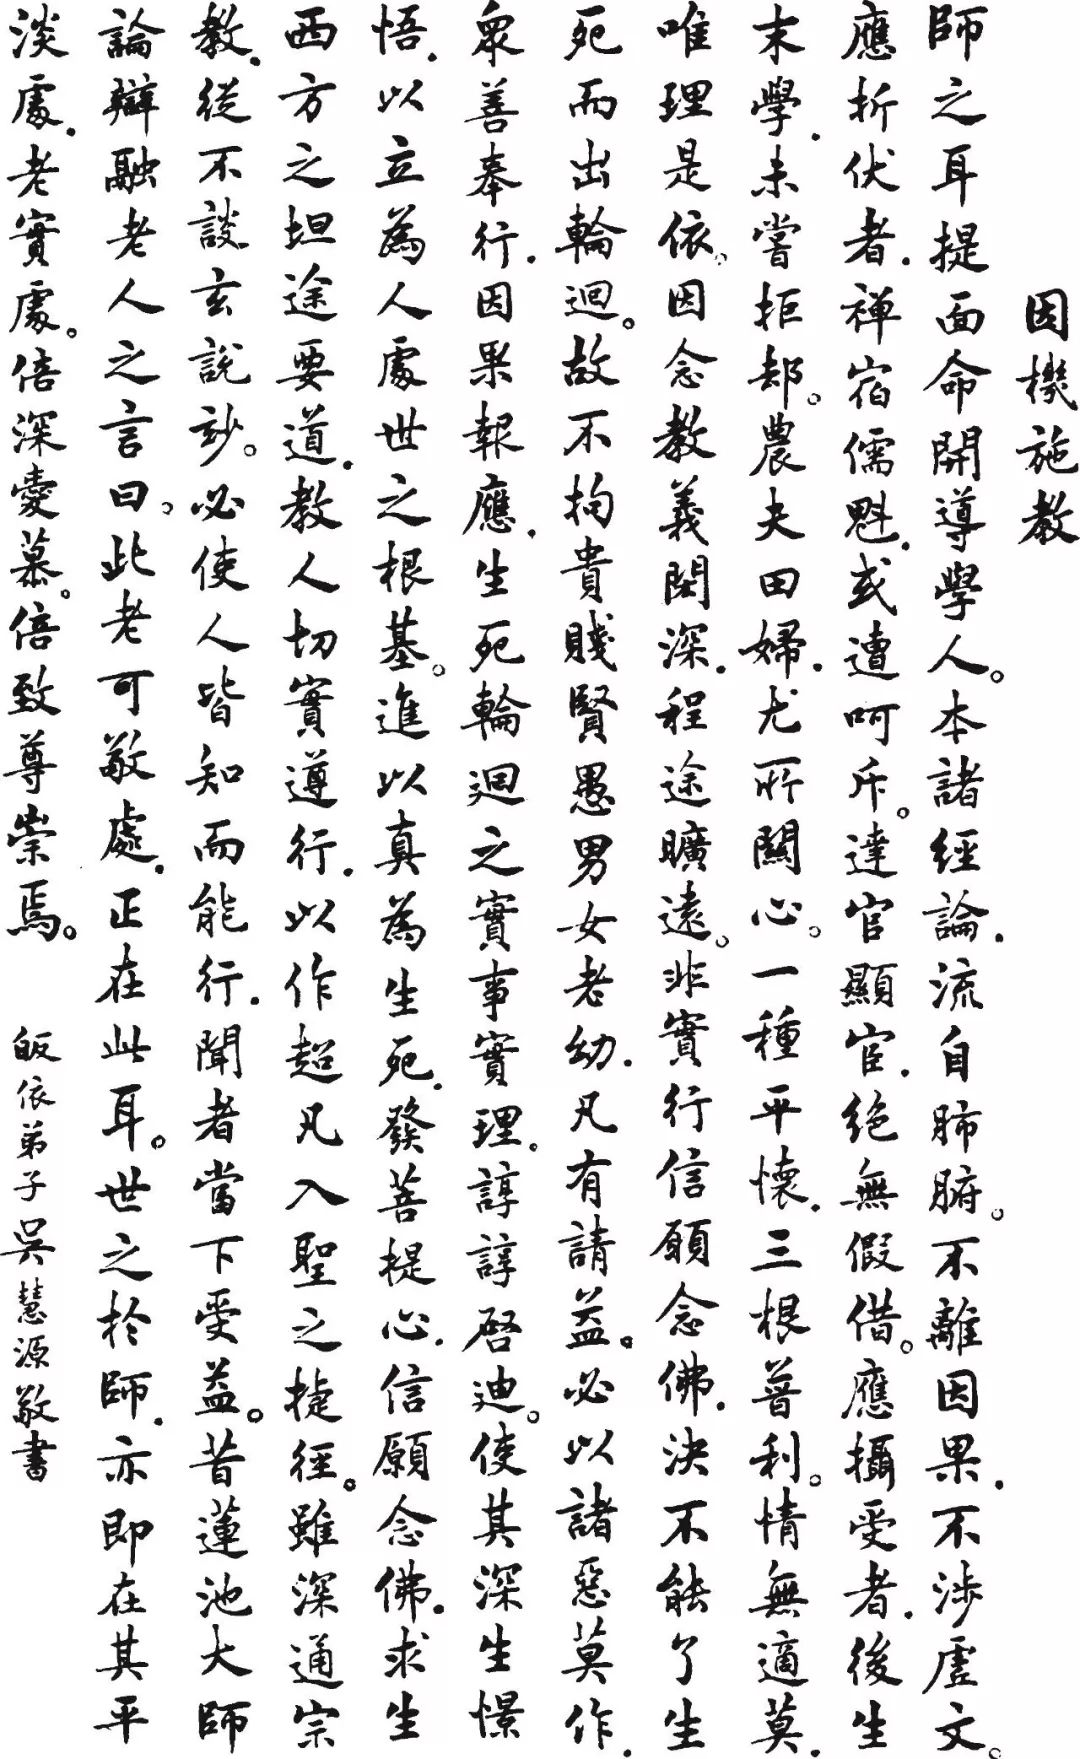 因機施教
師之耳提面命開導學人。本諸經論.流自肺腑。不離因果.不涉虛文。
應折伏者.禅宿儒魁.或遭呵斥。達官顯宦.绝無假借。應攝受者.後生
末學.未嘗拒却。農夫田婦.尤所關心。一種平懷.三根普利。情無適莫.
唯理是依。因念教義閎深.程途曠遠。非實行信願念佛.決不能了生
死而出輪迴。故不拘貴賤賢愚男女老幼.凡有請益。必以諸惡莫作.
衆善奉行.因果報應.生死輪迴之實事實理。諄諄啓迪。使其深生憬
悟.以立為人處世之根基。進以真為生死.發菩提心.信願念佛.求生
西方之坦途要道.教人切實遵行.以作超凡入聖之捷徑。雖深通宗
教.從不談玄說妙。必使人皆知而能行.聞者當下受益。昔蓮池大師
論辯融老人之言曰。此老可敬處.正在此耳。世之於師.亦即在其平
淡處.老實處。倍深愛慕。倍致尊崇焉。 皈依弟子吳慧源敬書